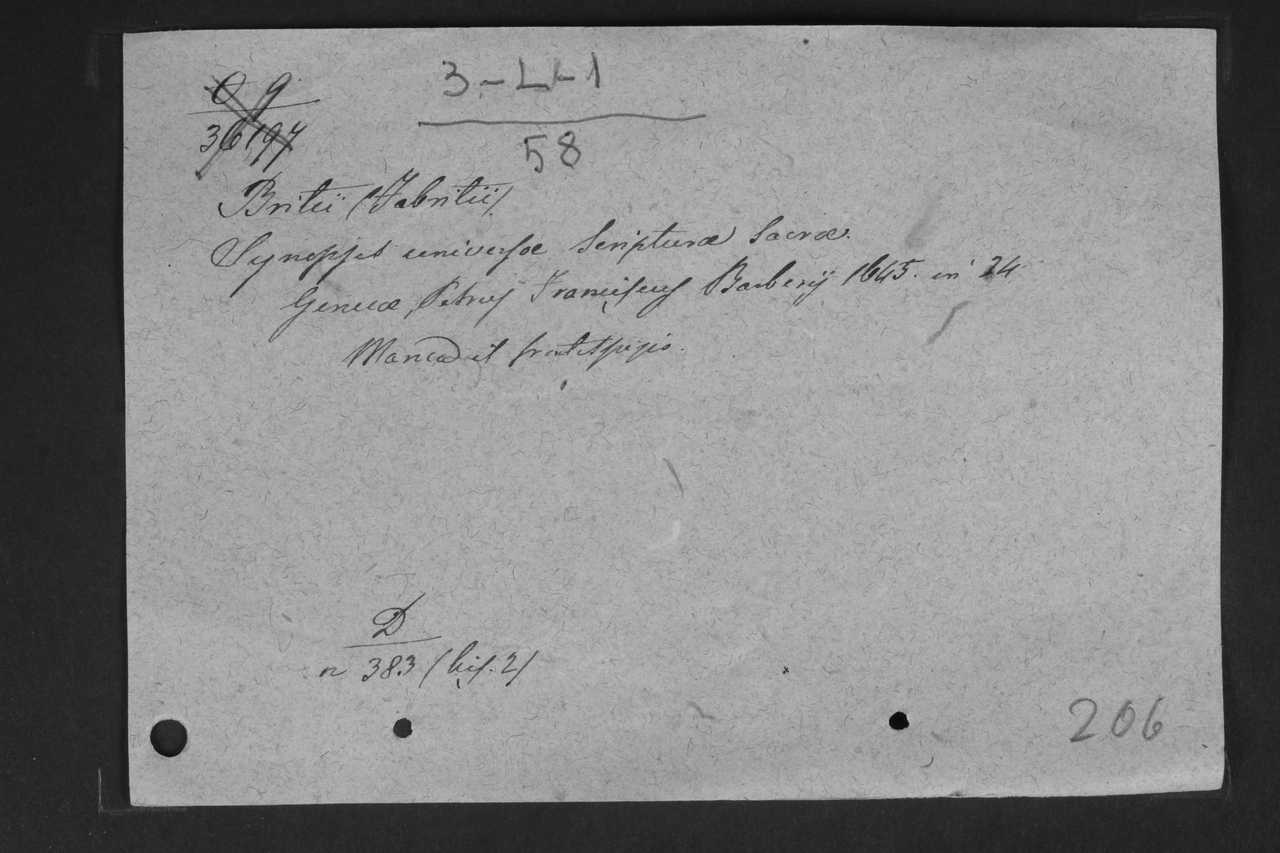 O g
36 197
3-LL-1
58
Britii (Fabritii)
Synopsis universæ Scripturæ Sacræ.
Genuæ, Petrus Franciscus Barberij 1645. in 24
Manca il frontespizio.
D
n 383 (bis. 2)
206